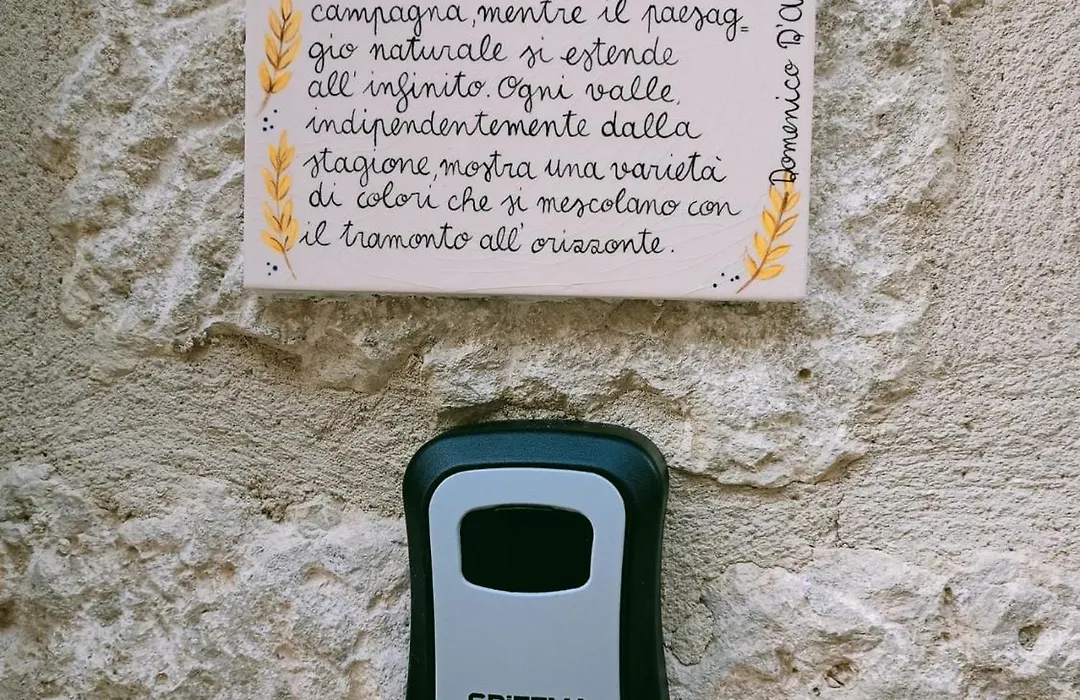 campagna, mentre il paesag=
gio naturale si estende
all'infinito. Ogni valle,
indipendentemente dalla
stagione, mostra una varietà
di colori che si mescolano con
il tramonto all'orizzonte.
Domenico D'A